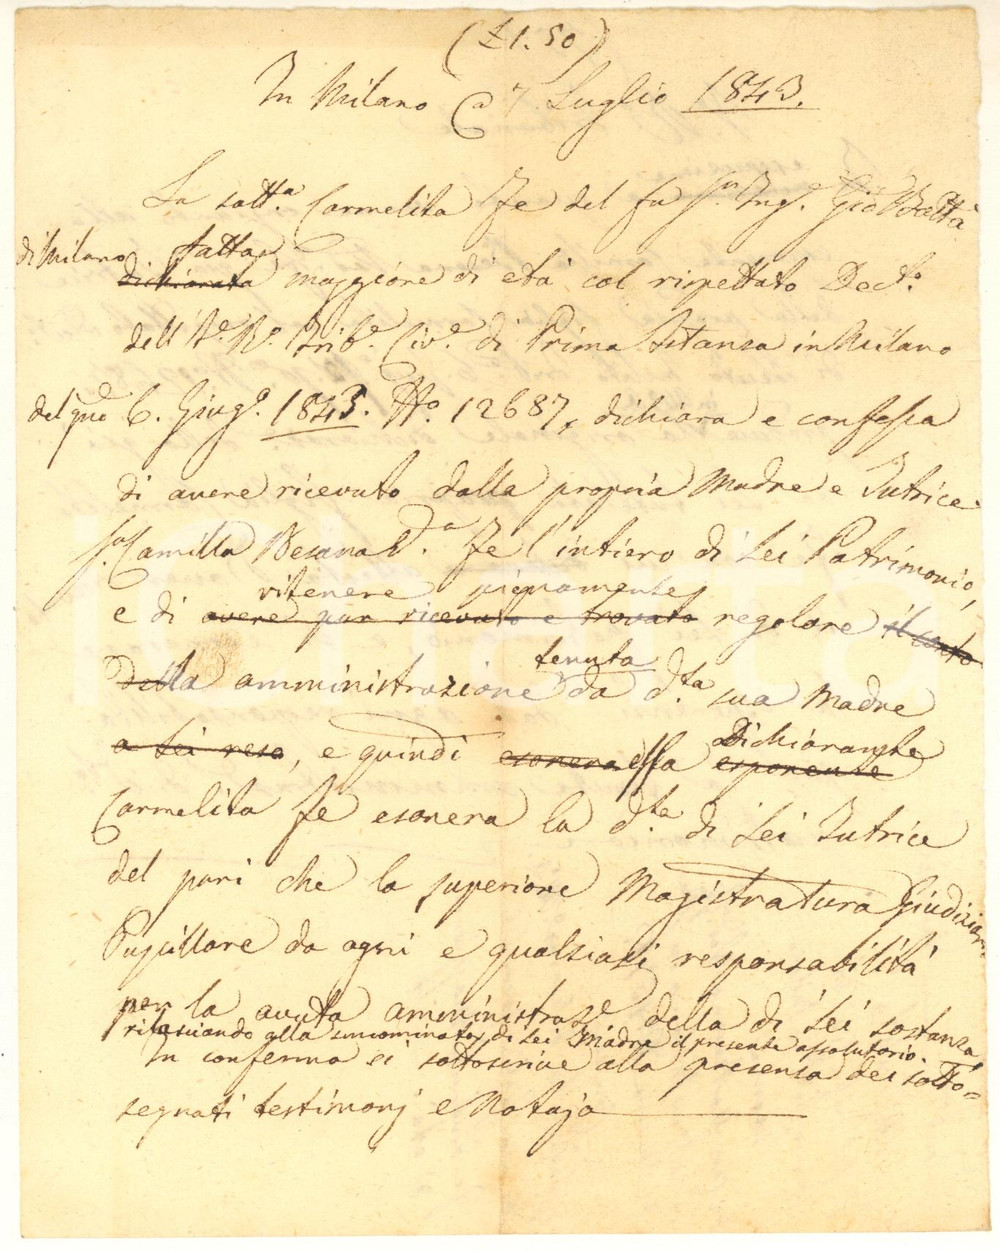 (£1. 50)
In Milano 7 Luglio 1843.
La sott.a Carmelita Fe del fu S.r Ing.e Gio Batta
di Milano fatta
dichiarata maggiore di età col rispettato Dec.to
dell'I.e R.o Trib.e Civ.e di Prima Istanza in Milano
6. Giug.o 1843. N.o 12687, dichiara e confessa
di avere ricevuto dalla propria Madre e Tutrice
S.a Camilla Besana V.a Fe l'intiero di Lei Patrimonio,
ritenere pienamente
e di avere pur ricevuto e trovato regolare il conto
tenuta
della amministrazione da d.ta sua Madre
Dichiarante
a Lei reso, e quindi esonera essa esponente
Carmelita Fe esonera la d.ta di Lei Tutrice
del pari che la superiore Magistratura Giudiziar.
Pupillare da ogni e qualsiasi responsabilità
per la avuta amministraz.e della di Lei sostanza,
rilasciando alla sunnominata di Lei Madre il presente assolutorio.
In conferma si sottoscrive alla presenza dei sotto=
segnati testimonj e Notajo